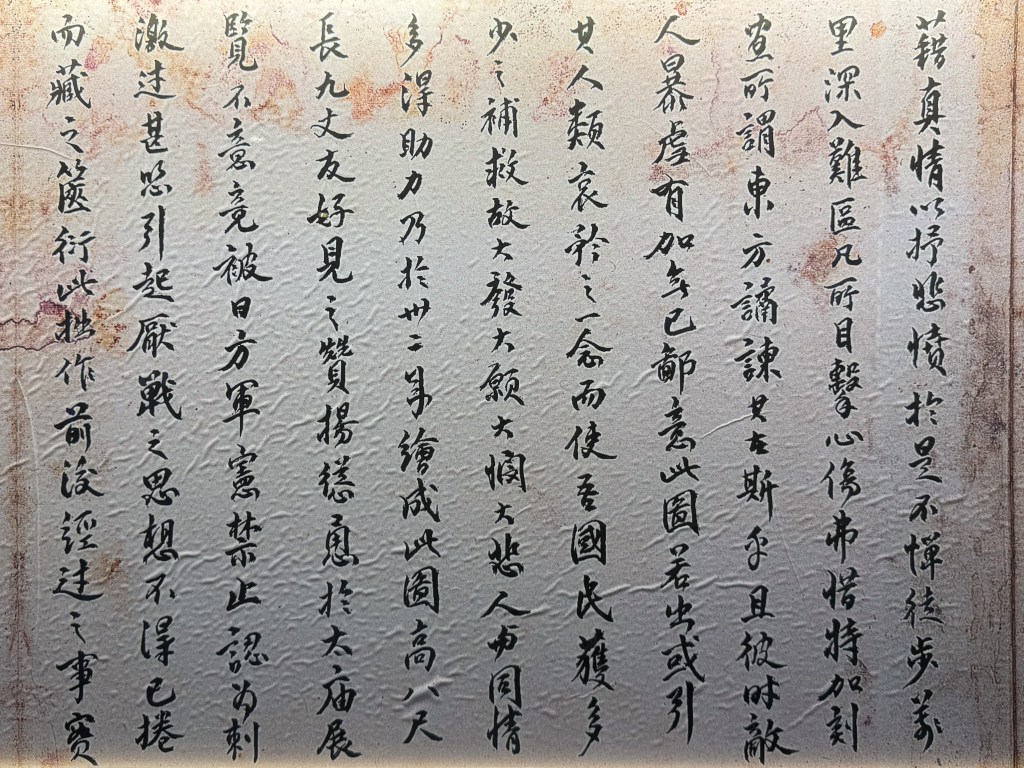 藉真情以抒悲憤於是不憚徒步萬
里深入難區凡所目擊心傷弗惜特加刻
畫所謂東方譎諫其在斯乎且彼時敵
人暴虐有加無已鄙意此圖若出或引
其人類哀矜之一念而使吾國民獲多
少之補救故大發大願大悯大悲人亦同情
多得助力乃於卅二年繪成此圖高八尺
長九丈友好見之贊揚慫恿於太庙展
覽不意竟被日方軍憲禁止認为刺
激过甚恐引起厭戰之思想不得已捲
而藏之篋衍此拙作前後經过之事實